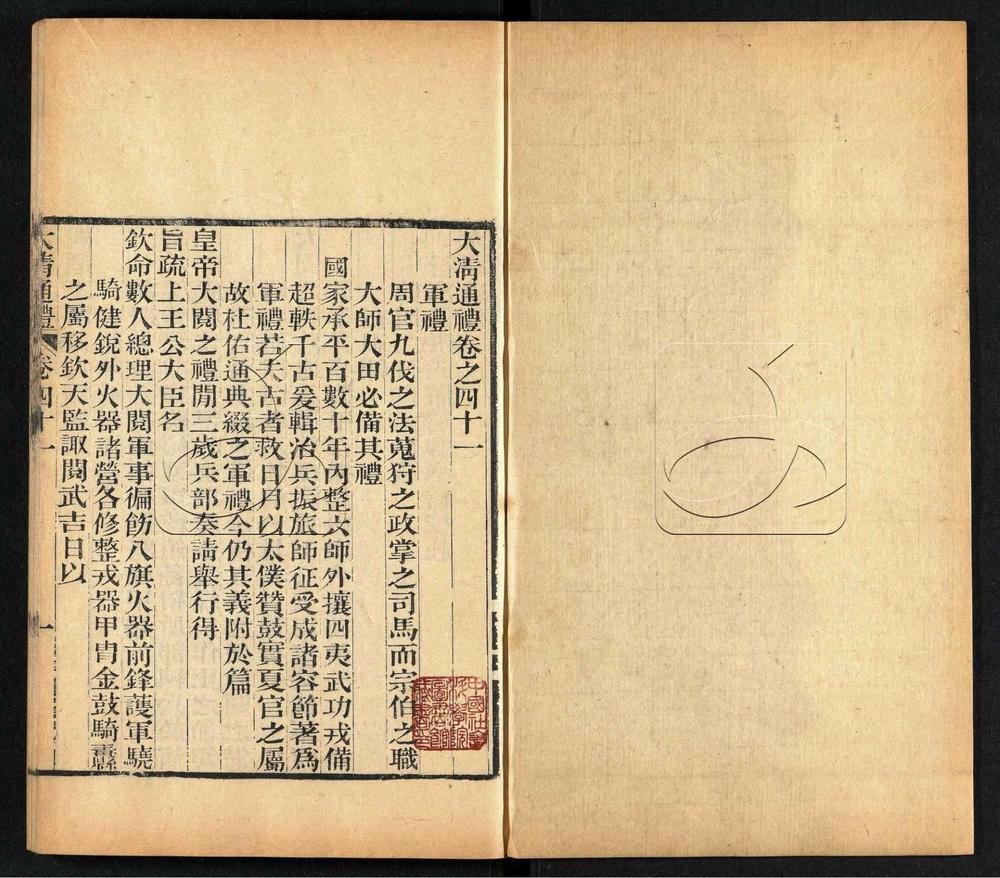 大清通禮卷之四十一
軍禮
周官九伐之法蒐狩之政掌之司馬而宗伯之職
大師大田必備其禮
國家承平百數十年內整文師外攘四夷武功戎備
超軼千古爰輯治兵振旅師征受成諸容節著爲
軍禮若夫古者救日月以太僕贊鼓實夏官之屬
故杜佑通典綴之軍禮今仍其義附於篇
皇帝大閱之禮閒三歲兵部奏請舉行得
旨疏上王公大臣名
欽命數人總理大閱軍事徧飭八旗火器前鋒護軍驍
騎健銳外火器諸營各修整戎器甲冑金鼓騎纛
之屬移欽天監諏閱武吉日以
大清通禮 卷四十一 一